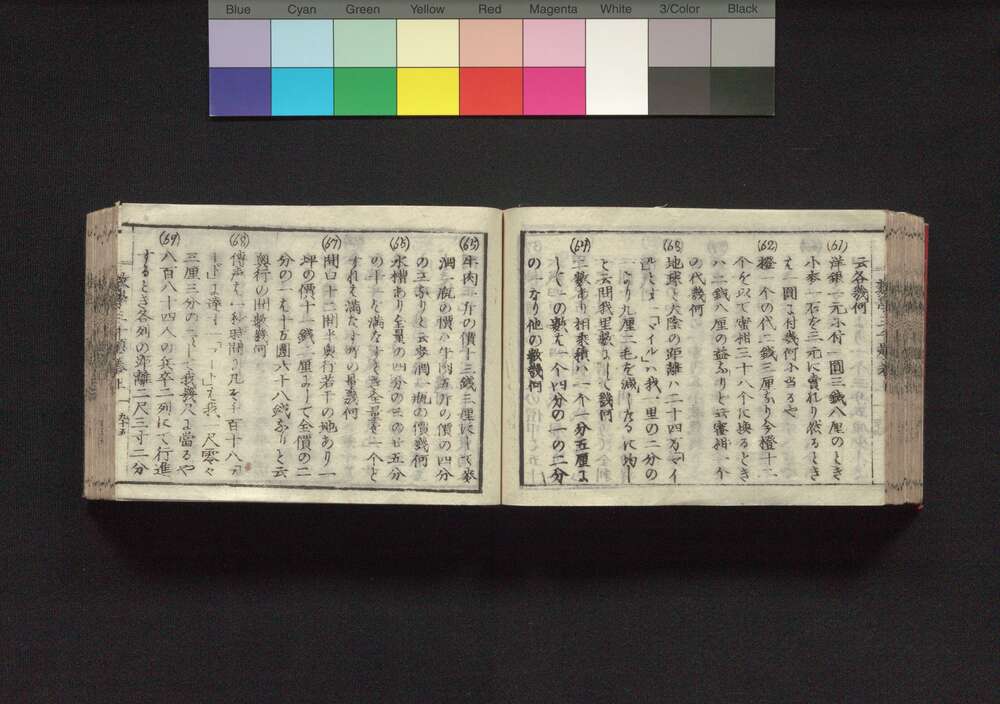 Blue Cyan Green Yellow Red Magenta White 3/Color Black
云各幾何
(61)
洋銀一元ニ付一圓三銭八厘のとき
小麥一石を三元に賣れり然るとき
え一圓よ付幾何小當るや
(62)
橙一个の代二銭三厘なり今橙十二
个を以て蜜柑三十八个に換るとき
ハ二銭八厘の益なりと云蜜柑一个
の代幾何
(63)
地球と太陰の距離ハ二十四万「マイ
ル」とす「マイル」ハ我一里の二分の
一より九厘二毛を減したるに均し
と云問我里數よして幾何
(64)
二數あり相乘積ハ一个一分五厘よ
して一の數え一个四分の一の二分
の一なり他の數幾何
(65)
牛肉一斤の價十三銭三厘にして麥
酒一瓶の價ハ牛肉五斤の價の四分
の三なりと云麥酒一瓶の價幾何
(66)
水槽あり全量の四分の三の廿五分
の十一を満たすとき全量を一个と
すれえ満たす所の量幾何
(67)
間口十二間半奥行若干の地あり一
坪の價十一銭二厘よして全價の二
分の一え十五圓六十八銭なりと云
奥行の間數幾何
(68)
傳聲え一秒時間よ凡そ千百十八フ
ート」よ達す「フート」え我一尺零々
三厘三分の一とす我幾尺よ當るや
(69)
八百八十四人の兵卒二列にて行進
するとき各列の距離二尺三寸二分